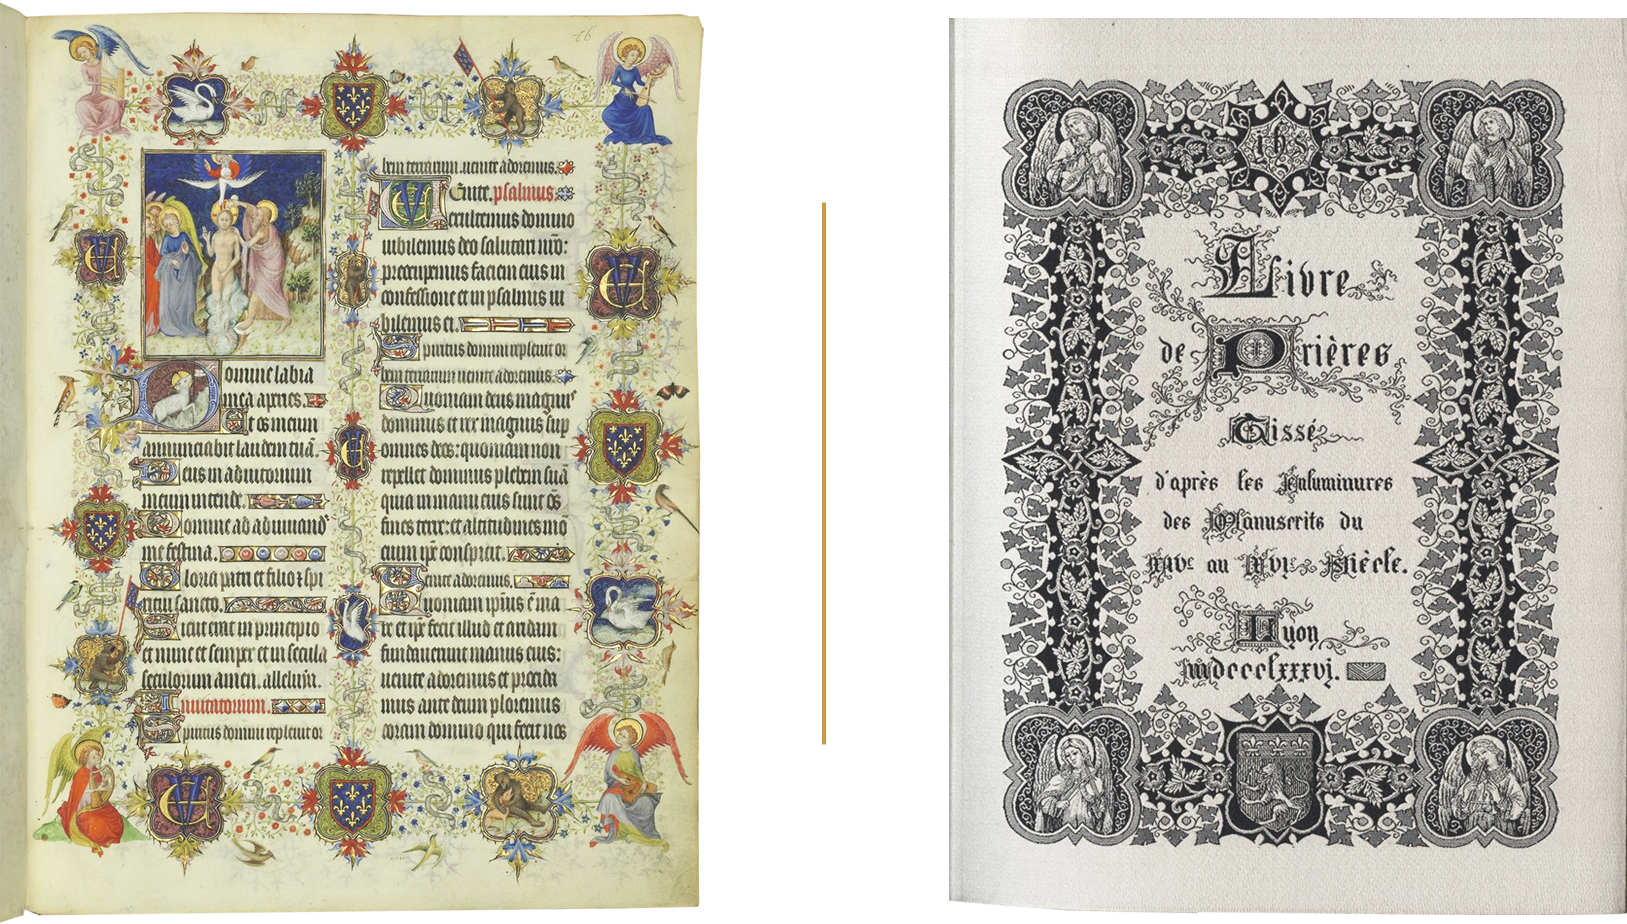 Domine labia
mea aperies.
Et os meum
annunciabit laudem tuā.
Deus in adiutorium
meum intende.
Domine ad adiuvand'
me festina.
Gloria patri et filio et spi
ritui sancto.
Sicut erat in principio
et nunc et semper et in secula
seculorum amen. alleluya.
Invitatorium.
Spiritus domini replevit or
bem terrarum. venite adoremus.
Venite. psalmus
exultemus domino
iubilemus deo salutari nr̄o:
preocupemus faciem eius in
confessione et in psalmis iu
bilemus ei.
Spiritus domini replevit or
bem terrarum venite adoremus.
Quoniam deus magnus
dominus et rex magnus sup
omnes deos: quoniam non
repellet dominus plebem suā
quia in manu eius sunt
fines terre: et altitudines mō
cium ip̄e conspicit.
Venite adoremus.
Quoniam ipīus ē ma
re et ip̄e fecit illud et aridam
fundaverunt manus eius:
venite adoremus et procida
mus ante deum ploremus
coram domino qui fecit nos
ihs
Livre
de Prières
Tissé
d'après les Enluminures
des Manuscrits du
XIVe au XVIe Siècle.
Lyon
mdccclxxxvj.